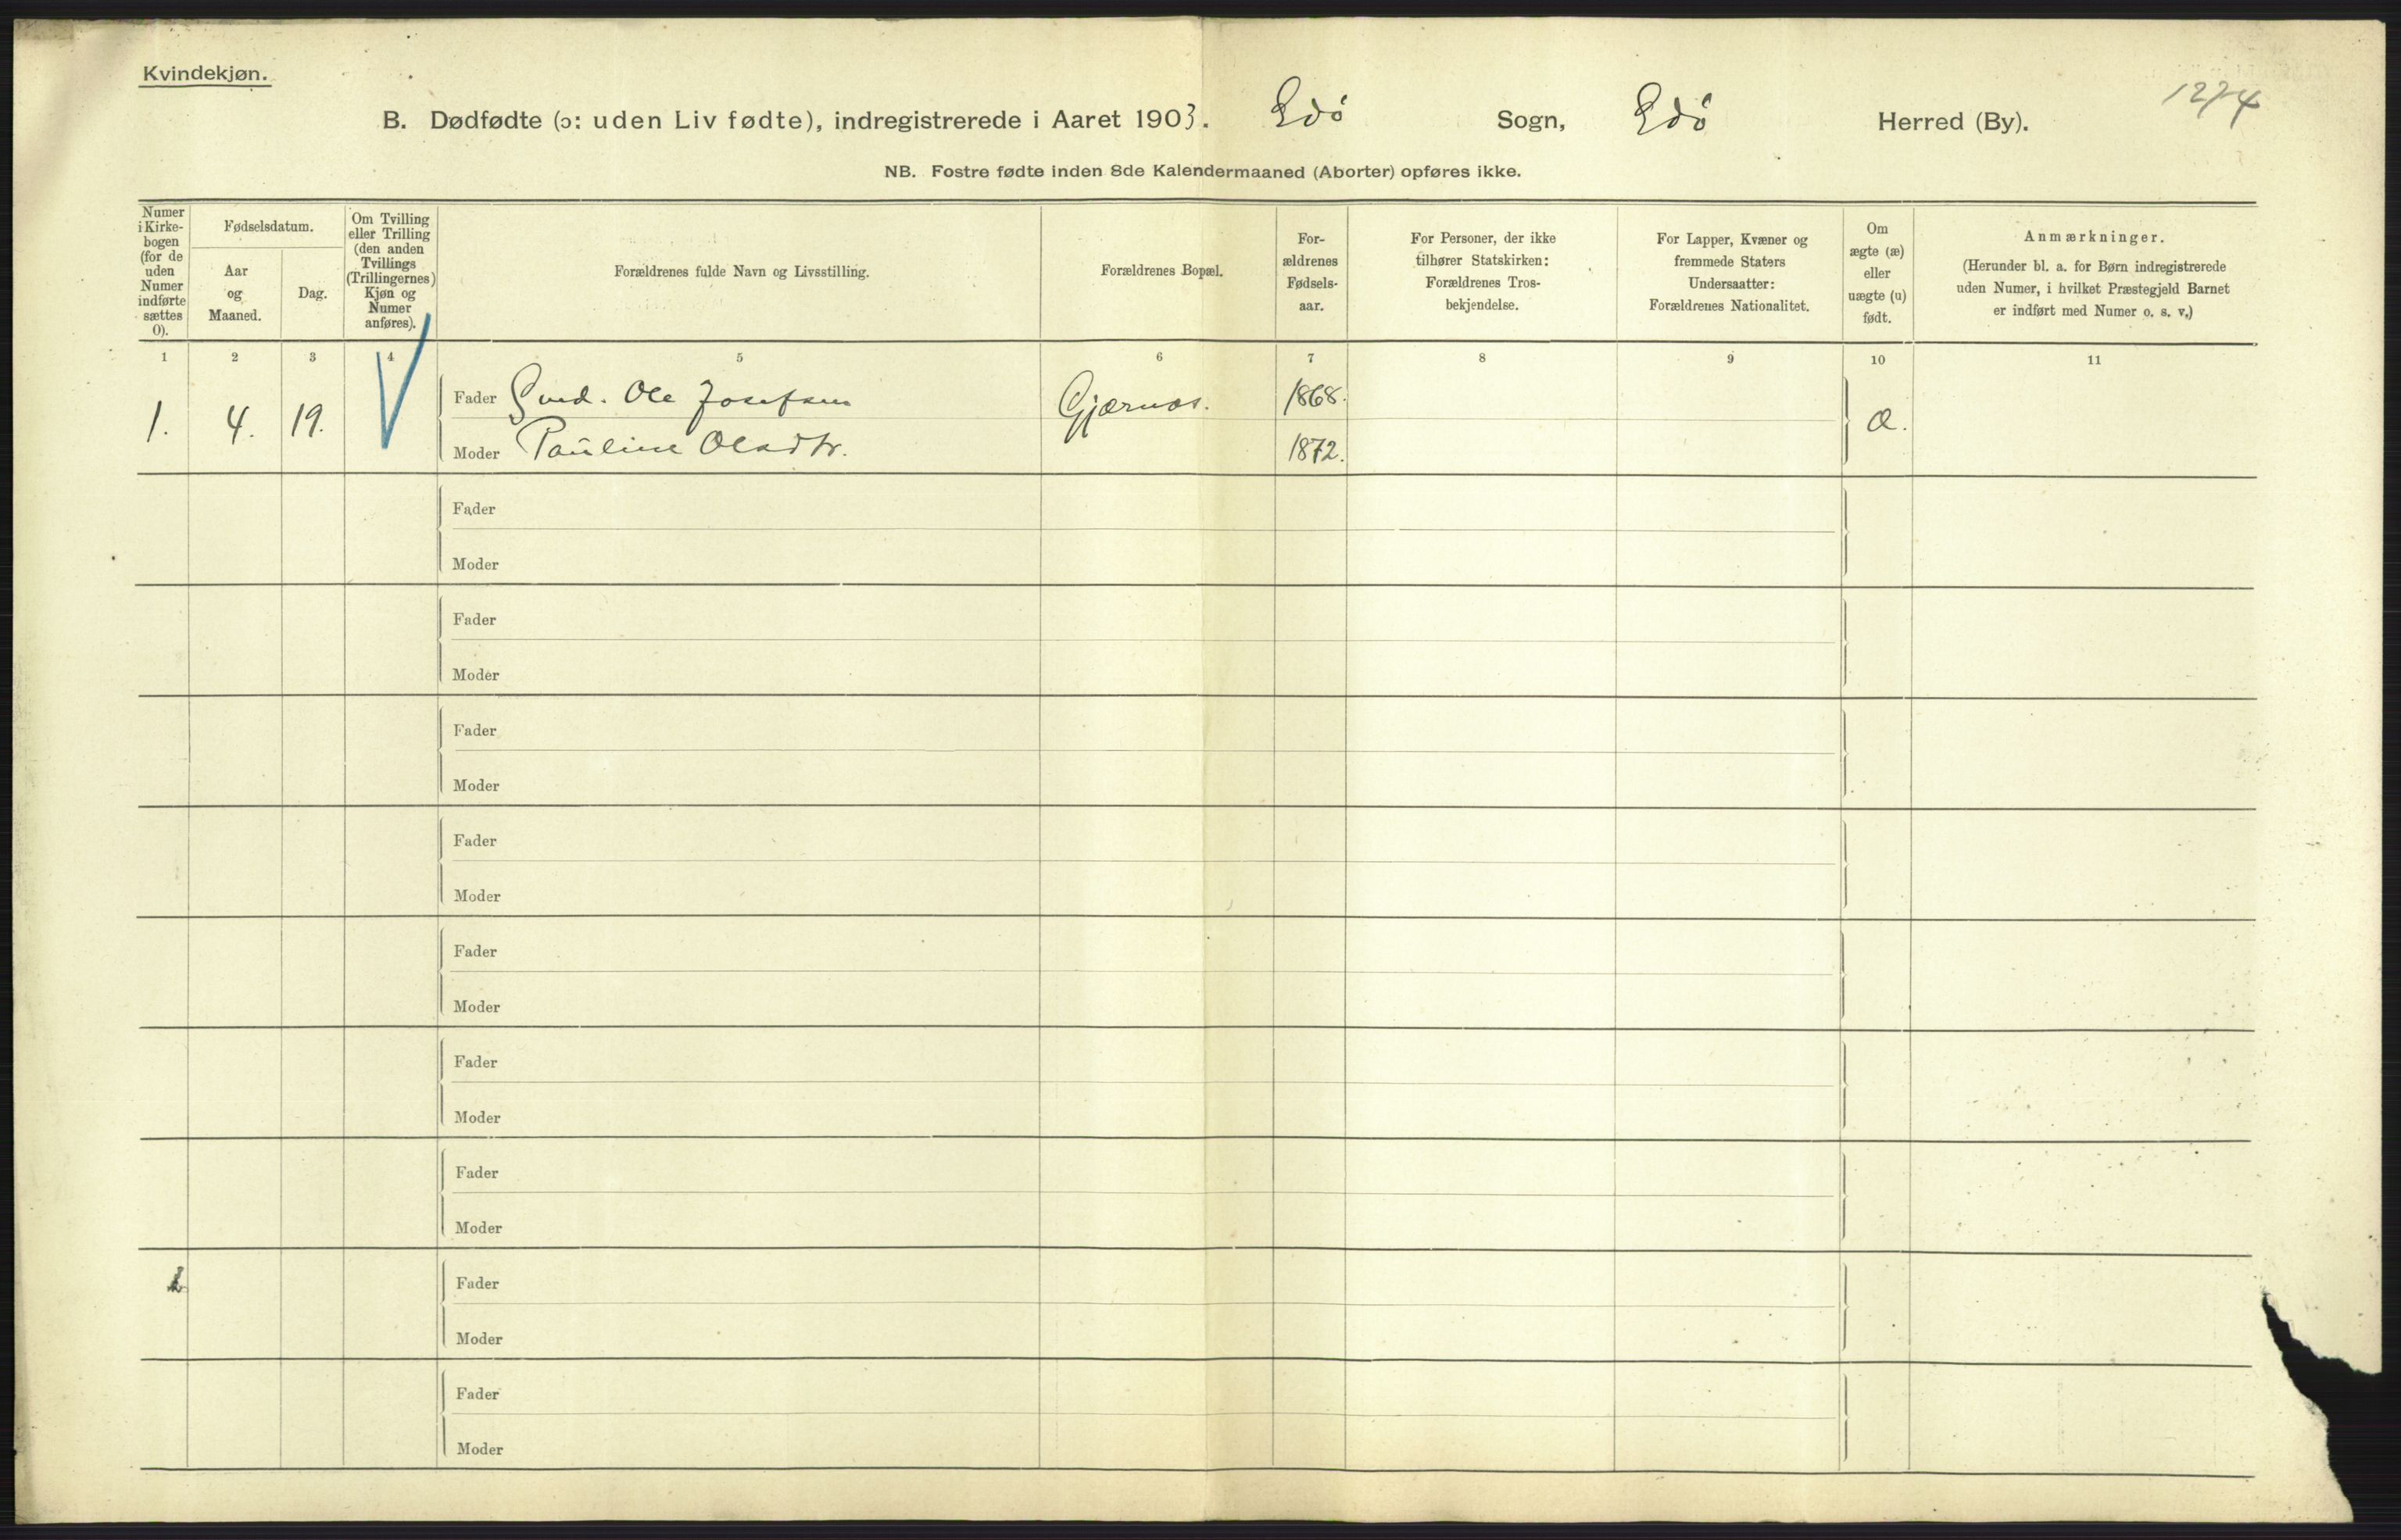 Kvindekjøn.
1274
B. Dødfødte (ɔ: uden Liv fødte), indregistrerede i Aaret 1903. Edö Sogn, Edö Herred (By).
NB. Fostre fødte inden 8de Kalendermaaned (Aborter) opføres ikke.
Numer
i Kirke-
bogen
(for de
uden
Numer
indførte
sættes
0).
Fødselsdatum.
Aar
og
Maaned.
Dag.
Om Tvilling
eller Trilling
(den anden
Tvillings
(Trillingernes)
Kjøn og
Numer
anføres).
Forældrenes fulde Navn og Livsstilling.
Forældrenes Bopæl.
For-
ældrenes
Fødsels-
aar.
For Personer, der ikke
tilhører Statskirken:
Forældrenes Tros-
bekjendelse.
For Lapper, Kvæner og
fremmede Staters
Undersaatter:
Forældrenes Nationalitet.
Om
ægte (æ)
eller
uægte (u)
født.
Anmærkninger.
(Herunder bl. a. for Børn indregistrerede
uden Numer, i hvilket Præstegjeld Barnet
er indført med Numer o. s. v.)
1 2 3 4 5 6 7 8 9 10 11
Fader Ole Josefsen 1868.
1. 4. 19. Æ.
Moder Pauline Olsdtr. 1872.
Fader
Moder
Fader
Moder
Fader
Moder
Fader
Moder
Fader
Moder
Fader
Moder
Fader
Moder
Fader
Moder
Fader
Moder